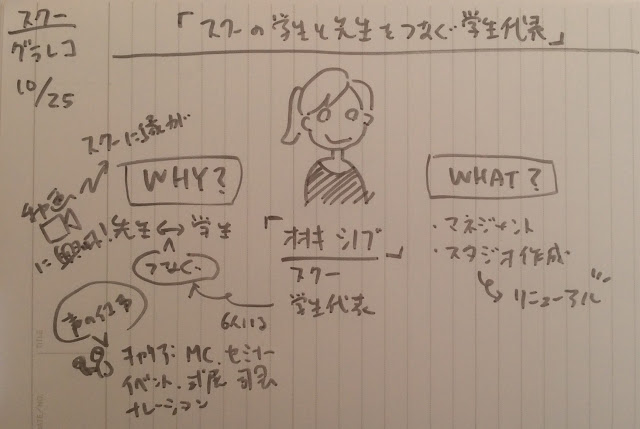 スクー
グラレコ
10/25
「スクーの学生と先生をつなぐ学生代表」
スクーに
WHY?
WHAT?
先生 ↔ 学生
つなぐ
スクー
学生代表
6人いる
・マネジメント
・スタジオ作成
リニューアル
MC. セミナー
イベント. 式展 司会
ナレーション